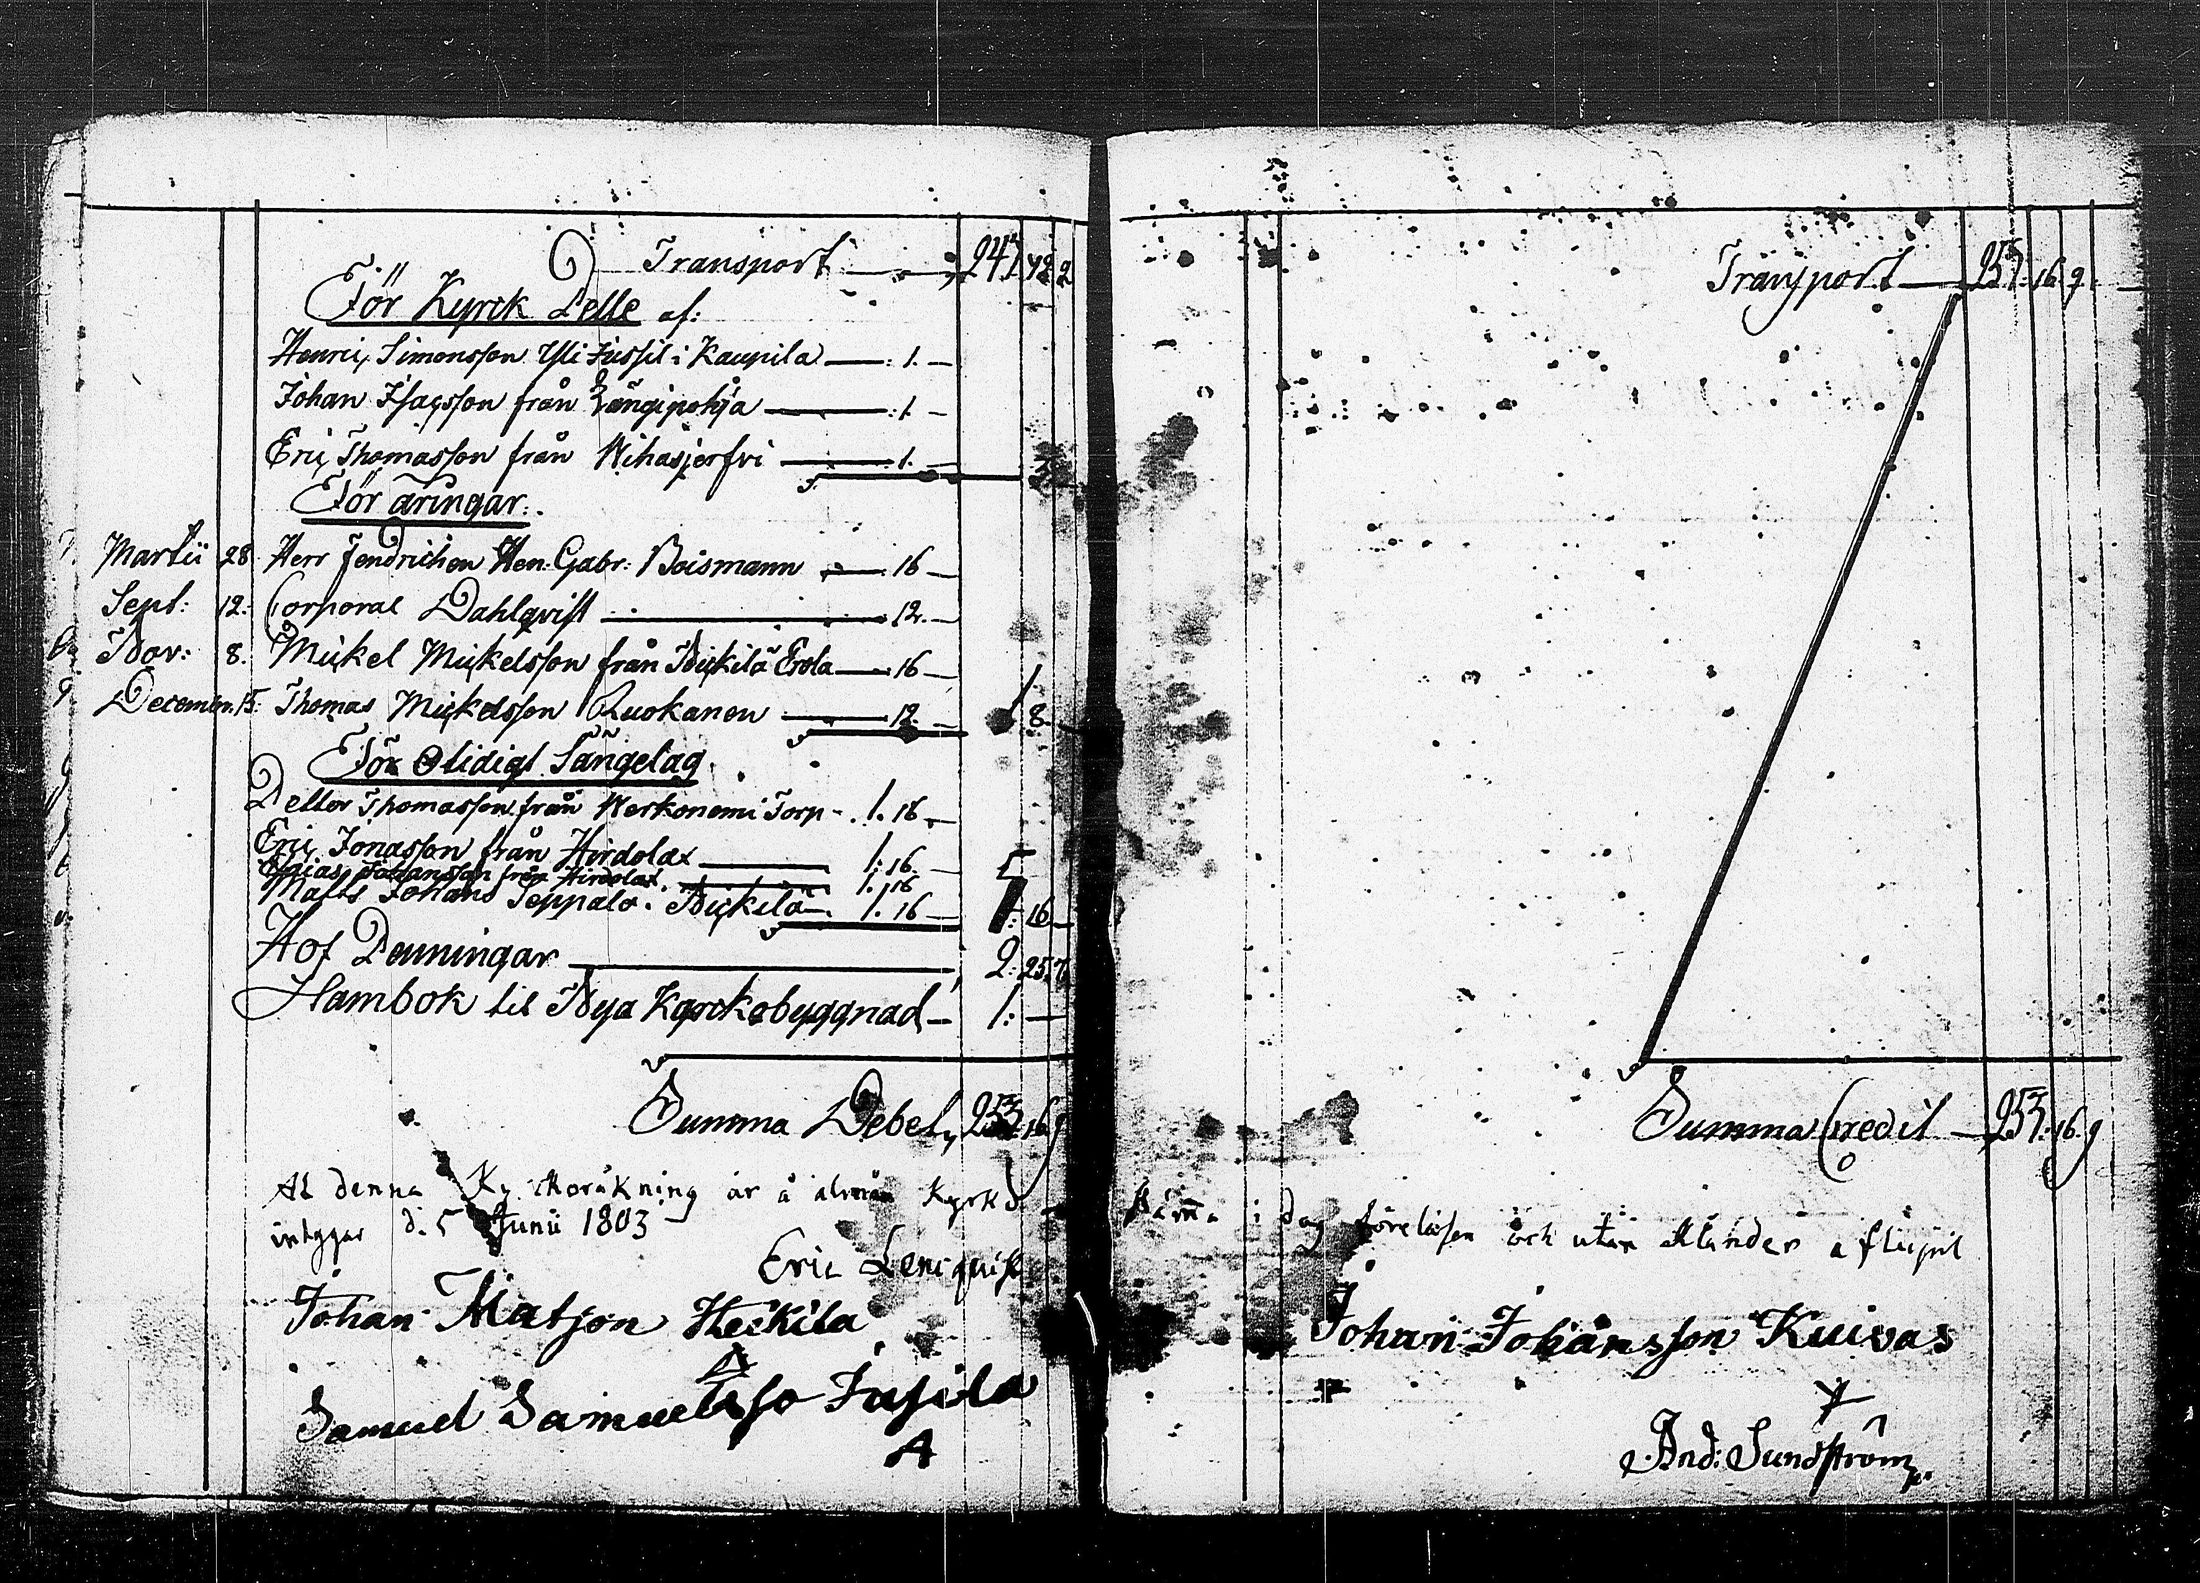 Transport 247 42 2
För Kyrck Pelle af:
Henric Simonsson Yli Jussil i Kaupila 1. —
Johan Isacsson från Längipohja 1 —
Eric Thomasson från Wihasjerfvi 1. —
För äringar.
Martii 28. Herr Fendrichen Hen: Gabr: Boismann 16 —
Sept: 12: Corporal Dahlqvist 12. —
Nov: 8. Mickel Mickelsson från Nickilä Erola 16 —
Decemb. 15. Thomas Mickelsson Ruokanen 12. — 1 8 —
För Otidigt Sängelag
Petter Thomasson från Werkonemi Torp 1. 16 —
Eric Jonasson från Hirdolax 1: 16. —
Esaias Johansson från Hirdolax 1. 16
Matts Johans Seppälä Nickilä 1. 16 — 5: 16 —
Hof Penningar 2: 25. 7
Stambok til Nya Kyrckobyggnad 1: —
Summa Debet 257 16 9
At denna Kyrckoräkning är å almän Kyrko
intygar d. 5 Junii 1803
Eric Lencquist
Johan Matson Heikila
Samuel Samuelsso Jusila
A
Transport 257: 16. 9
Summa Credit 257: 16. 9
stämma i dag föreläsen och utan klander aflupit
Johan Johansson Kuivas
And: Sundström